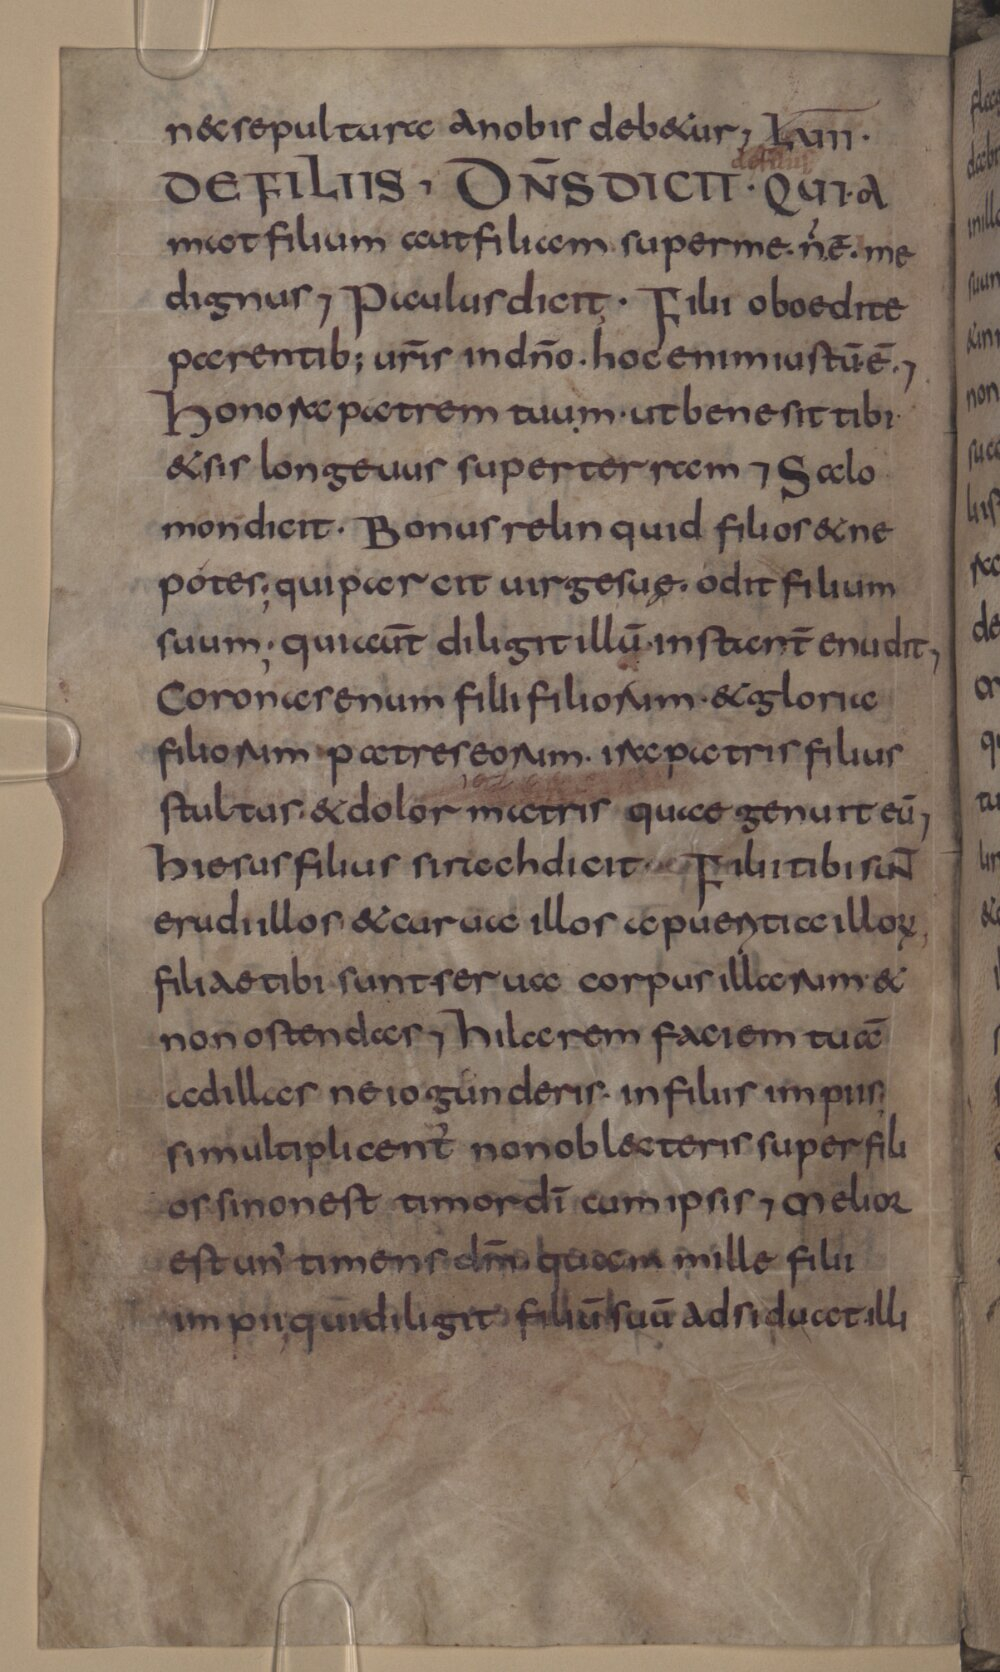 n&sepultura a nobis deb&ur, LVIII.
DE FILIIS, DN̄S DICIT. QUI A
mat filium aut filiam super me. n̄ ē. me
dignus, Paulus dicit. Filii oboedite
parentib; ur̄is in dn̄o. hoc enim iustū ē.,
Honora patrem tuum. ut bene sit tibi
& sis longeuus super terram, Salo
mon dicit. Bonus relinquid filios & ne
potes; qui parcit uirge suę. odit filium
suum; qui aut̄ diligit illū. instant̄ erudit,
Corona senum filii filiorum. & gloria
filiorum patres eorum. ira patris filius
stultus. & dolor matris quae genuit eū,
hiesus filius sirach dicit. Filii tibi sun̄
erudi illos & curua illos a pueritia illoꝝ,
filiae tibi sunt serua corpus illarum. &
non ostendas, hilarem faciem tuā
ad illas ne iogunderis. in filiis impiis;
si multiplicent̉ non obl&teris super fili
os si non est timor dī cum ipsis, Melior
est un̉ timens dm̄ quam mille filii
impii; qui diligit filiū suū adsiduat illi